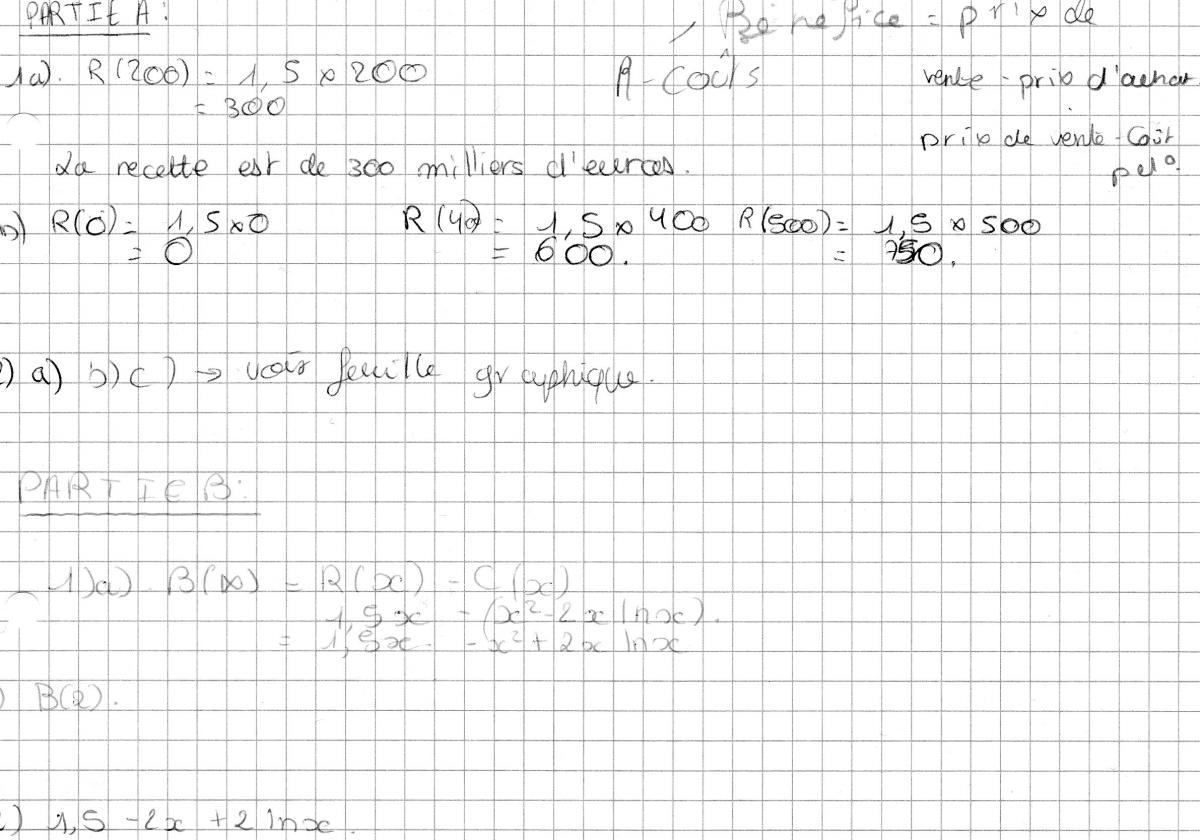 PARTIE A:
Bénéfice = prix de
vente - prix d'achat
1a). R(200) = 1,5 × 200
= 300
R - Coûts
prix de vente - Coût
La recette est de 300 milliers d'euros.
b) R(0) = 1,5 × 0
= 0
R(40) = 1,5 × 400
= 600.
R(500) = 1,5 × 500
= 750.
2) a) b) c) → voir feuille graphique.
PARTIE B:
1)a). B(x) = R(x) - C(x)
1,5x - (x² - 2x lnx).
= 1,5x - x² + 2x lnx
) B(2).
) 1,5 - 2x + 2 lnx.